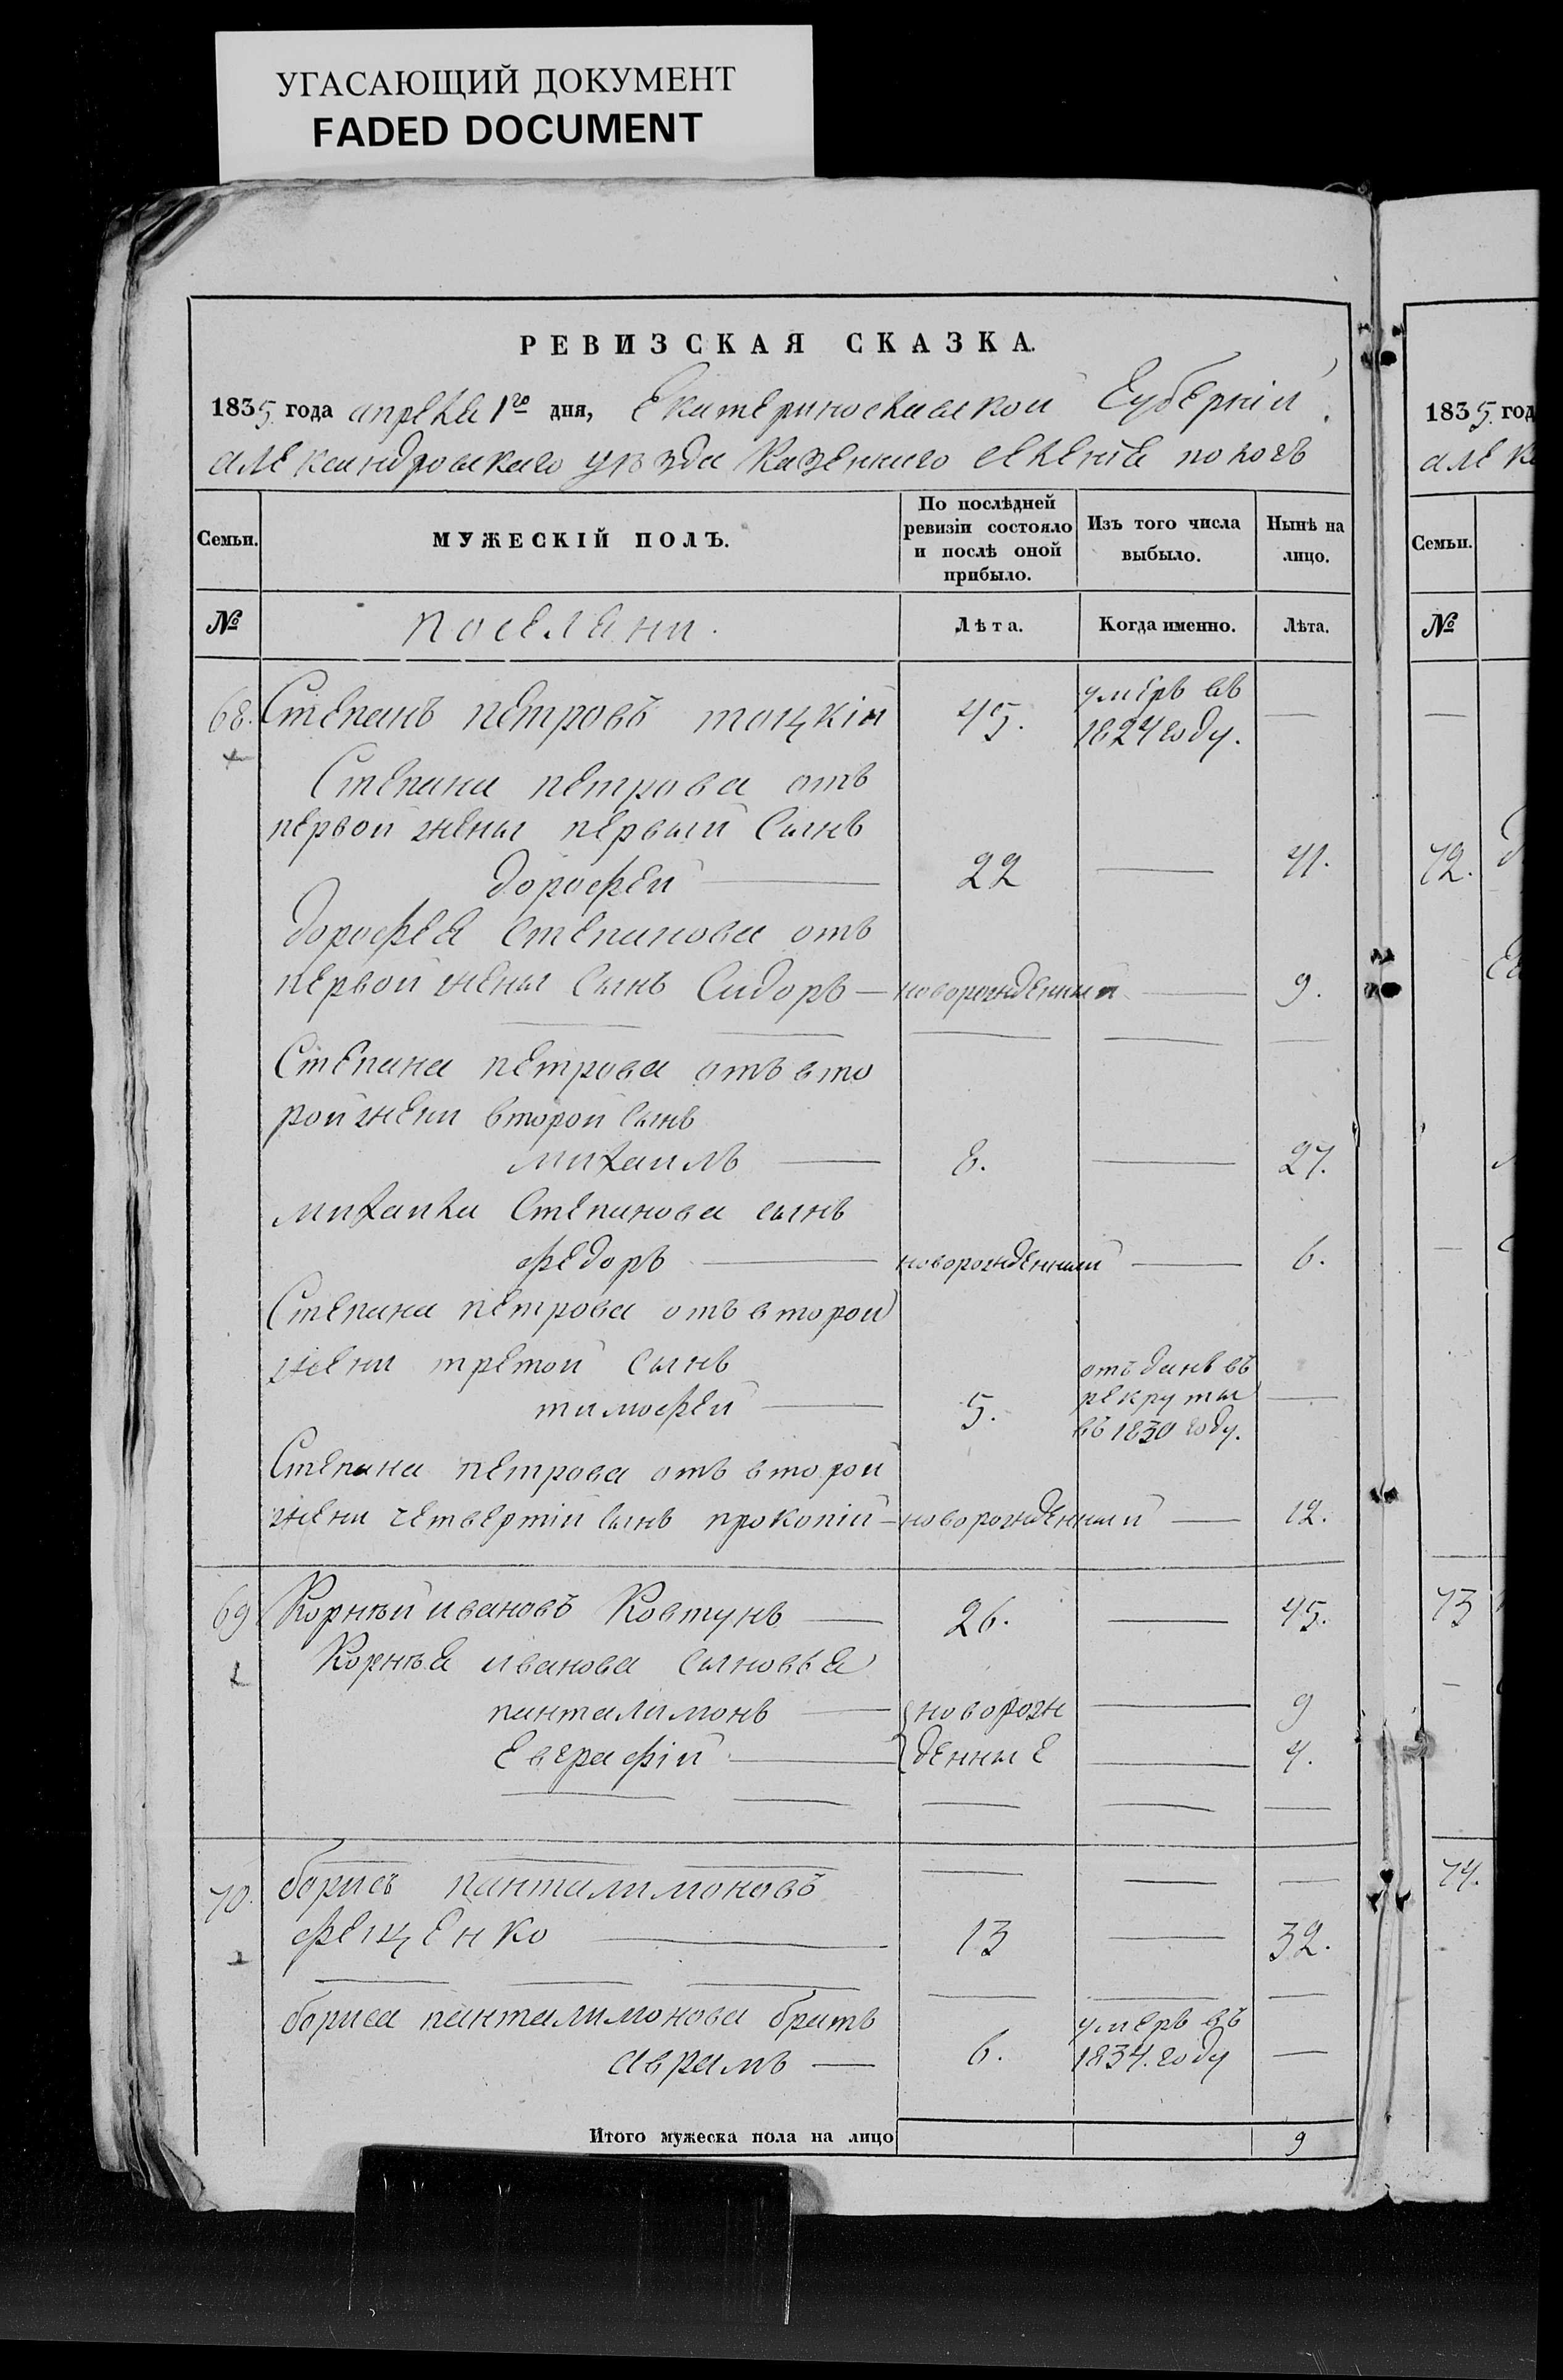 УГАСАЮЩИЙ ДОКУМЕНТ
FADED DOCUMENT
РЕВИЗСКАЯ СКАЗКА.
1835 года апреля 1го дня, Екатеринославской Губернии
александровскаго уѣзда Казеннаго селения пологъ
Семьи. МУЖЕСКІЙ ПОЛЪ. По послѣдней ревизіи состояло и послѣ оной прибыло. Изъ того числа выбыло. Нынѣ на лицо.
№ поселяни. Лѣта. Когда именно. Лѣта.
68. Степанъ петровъ тоцкій 45. умеръ въ 1824 году. —
Степана петрова отъ
первой жены первый сынъ
дорофей — 22 — 41.
дорофея степанова отъ
первой жены сынъ Сидоръ — новорожденный — 9.
Степана петрова отъ вто
рой жени второй сынъ
михаилъ — 8. — 27.
михаила Степанова сынъ
федоръ — новорожденный — 6.
Степана петрова отъ второй
жени третой сынъ
тимофей — 5. отъданъ въ рекруты въ 1830 году. —
Степана петрова отъ второй
жени четвертій сынъ прокопій — новорожденный — 12.
69 Корнѣй ивановъ Ковтунъ — 26. — 45.
Корнѣя иванова сыновья
панталимонъ — новорож — 9
Еверафій — денные — 4.
70. борисъ панталимоновъ
фещенко — 13 — 32.
бориса панталимонова братъ
аврамъ — 6. умеръ въ 1834. году —
Итого мужеска пола на лицо 9
1835. год
але
Семьи.
№
72.
73
74.